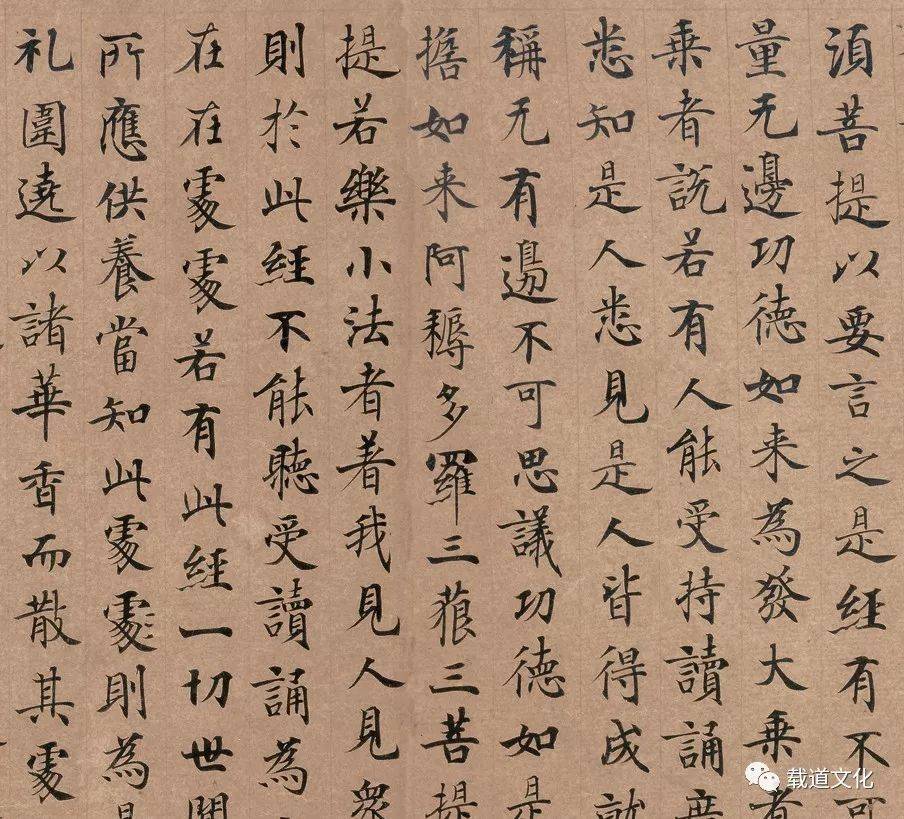 須菩提以要言之是經有不可
量无邊功德如来為發大乗者
乗者説若有人能受持讀誦廣
悉知是人悉見是人皆得成就
稱无有邊不可思議功德如是
擔如来阿耨多羅三藐三菩提
提若樂小法者着我見人見衆
則於此經不能聽受讀誦為
在在處處若有此經一切世間
所應供養當知此處處則為
礼圍遶以諸華香而散其處
载道文化